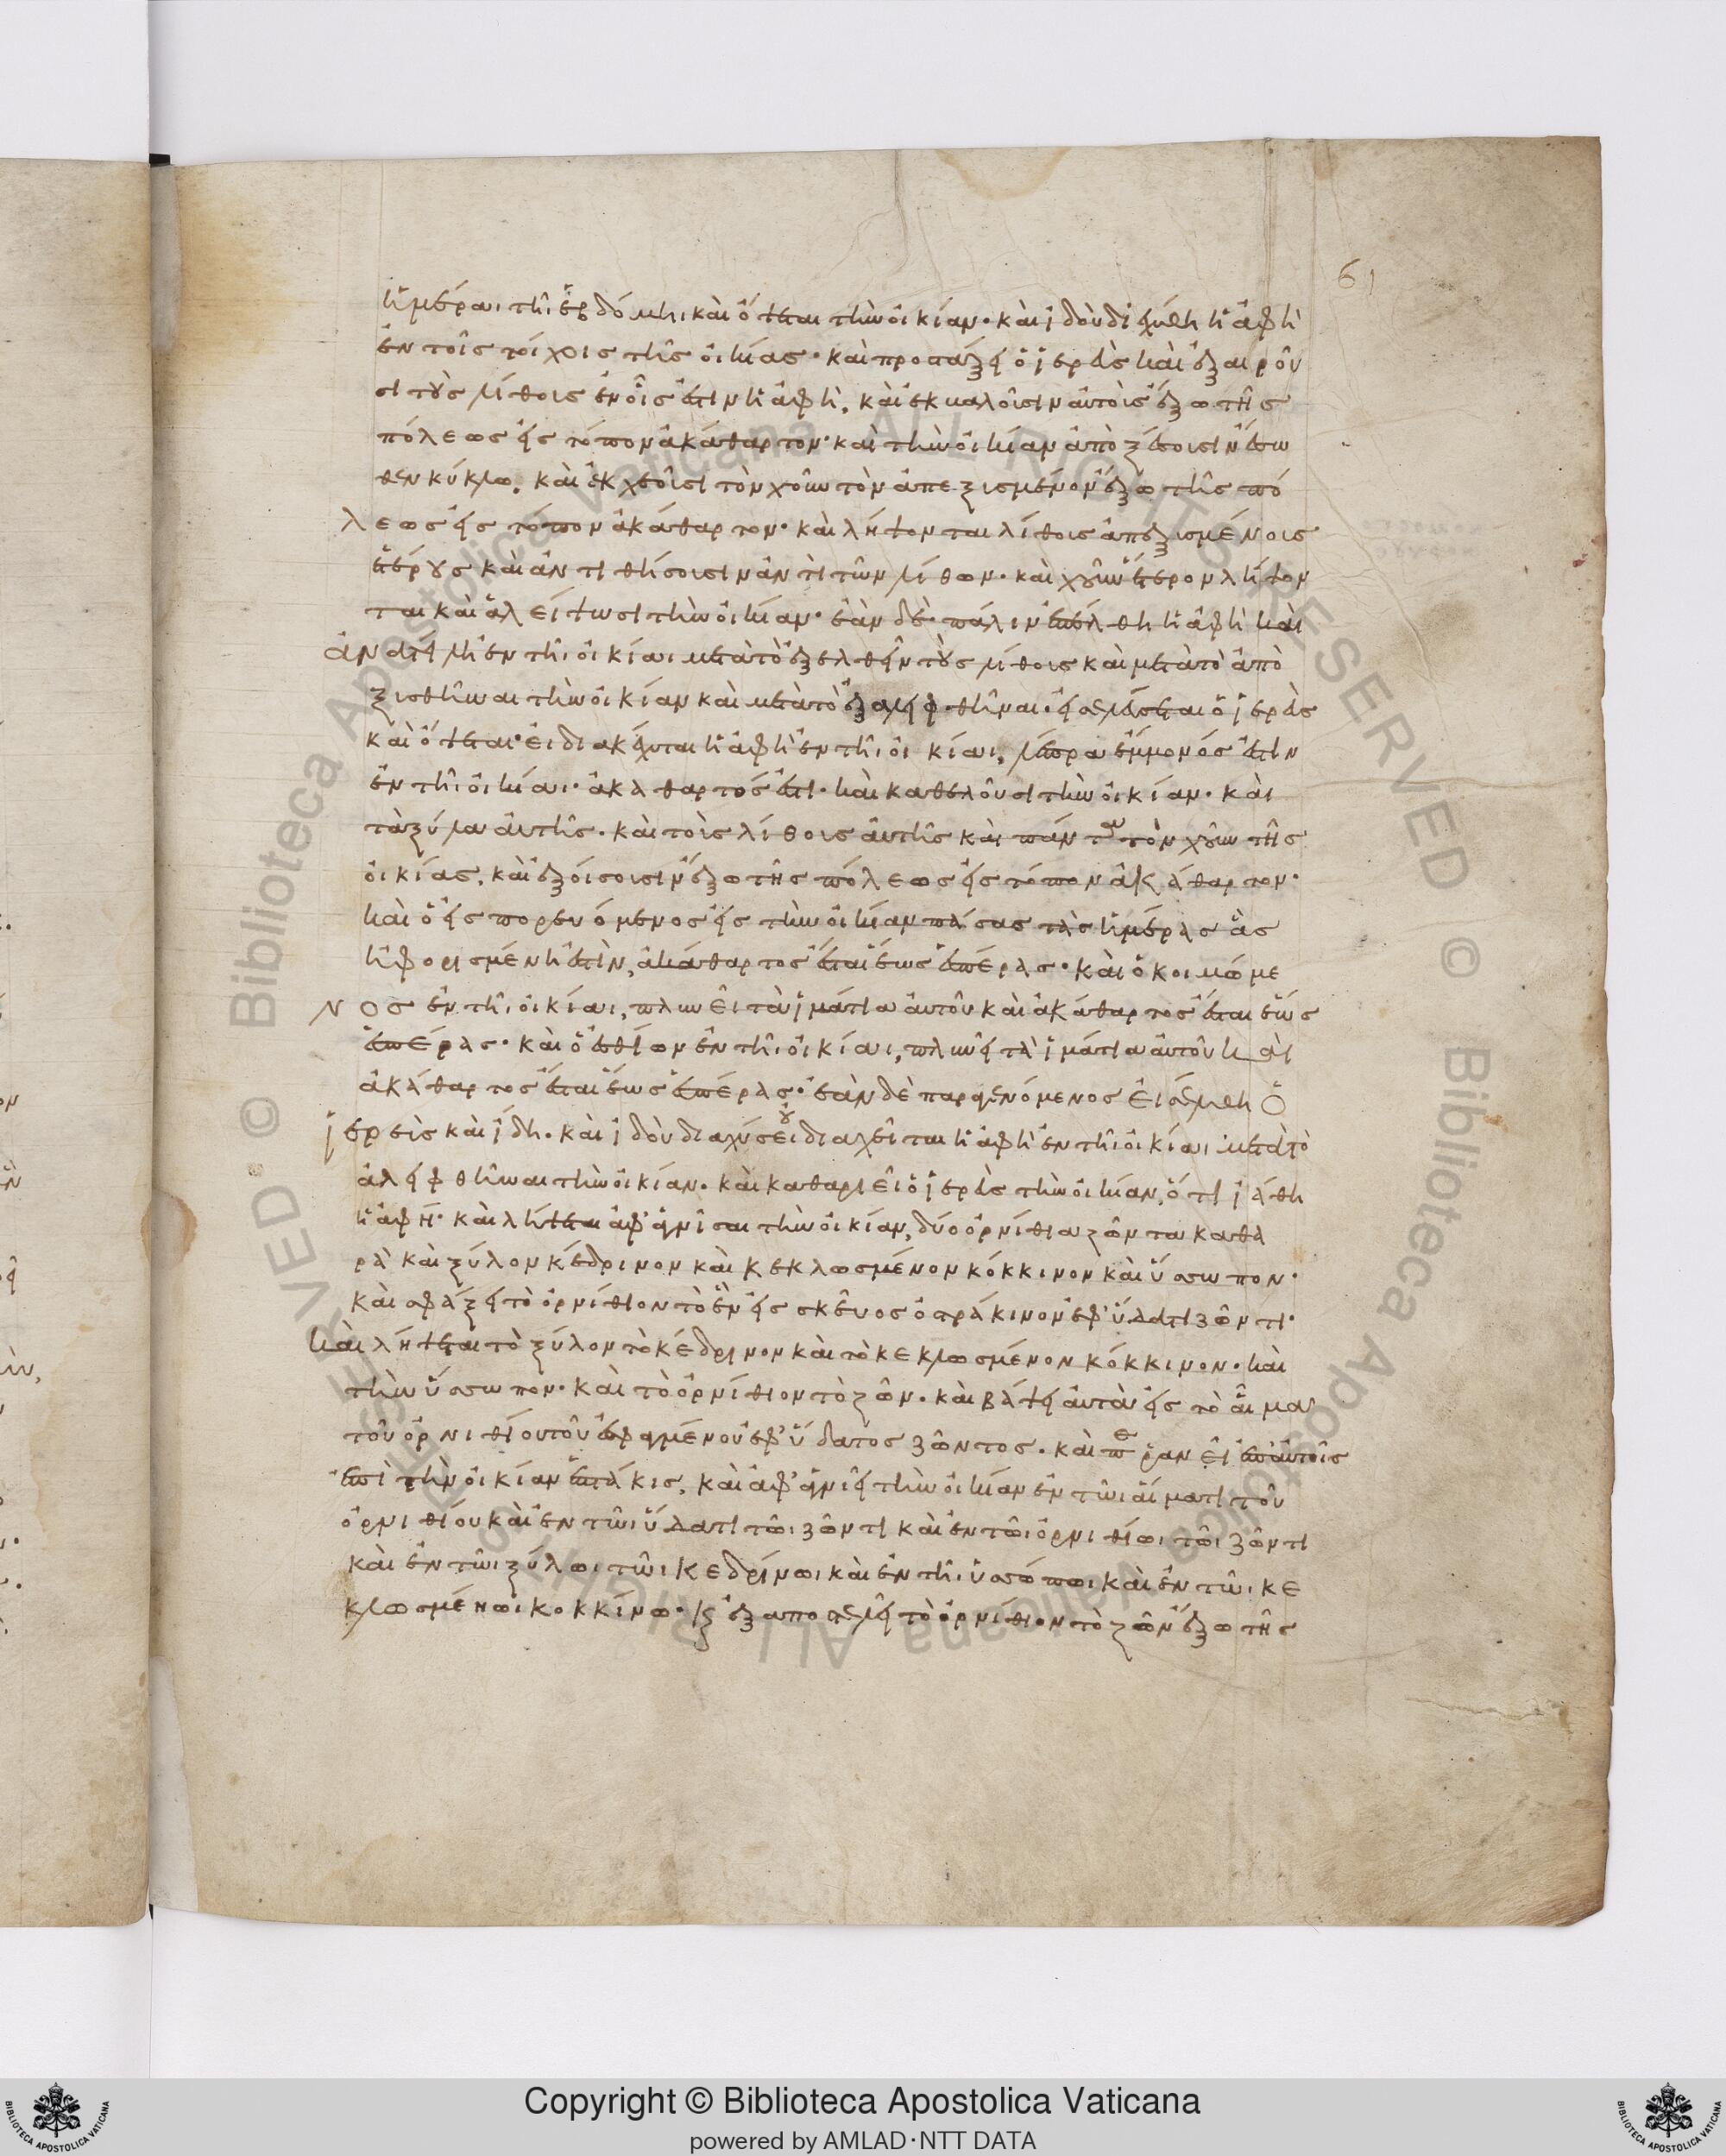 61
ἡμέραι τῆι ἑβδόμηι καὶ ὄψεται τὴν οἰκίαν· καὶ ἰδοὺ διεχύθη ἡ ἁφὴ
ἐν τοῖς τοίχοις τῆς οἰκίας· καὶ προστάξει ὁ ἱερεὺς καὶ ἐξαιροῦ
σι τοὺς λίθους ἐν οἷς ἐστιν ἡ ἁφὴ, καὶ ἐκβαλοῦσιν αὐτοὺς ἔξω τῆς
πόλεως εἰς τόπον ἀκάθαρτον· καὶ τὴν οἰκίαν ἀποξύσουσιν ἔσω
θεν κύκλω, καὶ ἐκχεοῦσι τὸν χοῦν τὸν ἀπεξυσμένον ἔξω τῆς πό
λεως εἰς τόπον ἀκάθαρτον· καὶ λήψονται λίθους ἀπεξυσμένους
ἑτέρους καὶ ἀντιθήσουσιν ἀντὶ τῶν λίθων· καὶ χοῦν ἕτερον λήψον
ται καὶ ἀλείψωσι τὴν οἰκίαν· ἐὰν δὲ πάλιν ἐπέλθη ἡ ἁφὴ καὶ
ἀνατείλη ἐν τῆι οἰκίαι μετὰ τὸ ἐξελθεῖν τοὺς λίθους καὶ μετὰ τὸ ἀπο
ξυσθῆναι τὴν οἰκίαν καὶ μετὰ τὸ ἐξαλειφθῆναι· εἰσελεύσεται ὁ ἱερεὺς
καὶ ὄψεται· εἰ διακέχυται ἡ ἁφὴ ἐν τῆι οἰκίαι, λέπρα ἔμμονός ἐστιν
ἐν τῆι οἰκίαι· ἀκάθαρτός ἐστι· καὶ καθελοῦσι τὴν οἰκίαν· καὶ
τὰ ξύλα αὐτῆς· καὶ τοὺς λίθους αὐτῆς καὶ πάντα τὸν χοῦν τῆς
οἰκίας, καὶ ἐξοίσουσιν ἔξω τῆς πόλεως εἰς τόπον ἀκάθαρτον·
καὶ ὁ εἰσπορευόμενος εἰς τὴν οἰκίαν πάσας τὰς ἡμέρας ἃς
ἡφορισμένη ἐστὶν, ἀκάθαρτος ἔσται ἕως ἑσπέρας· καὶ ὁ κοιμώμε
νος ἐν τῆι οἰκίαι, πλυνεῖ τὰ ἱμάτια αὐτοῦ καὶ ἀκάθαρτος ἔσται ἕως
ἑσπέρας· καὶ ὁ ἐσθίων ἐν τῆι οἰκίαι, πλυνεῖ τὰ ἱμάτια αὐτοῦ καὶ
ἀκάθαρτος ἔσται ἕως ἑσπέρας· ἐὰν δὲ παραγενόμενος εἰσέλθη ὁ
ἱερεὺς καὶ ἴδη· καὶ ἰδοὺ διαχύσει οὐ διαχεῖται ἡ ἁφὴ ἐν τῆι οἰκίαι μετὰ τὸ
ἀλειφθῆναι τὴν οἰκίαν· καὶ καθαριεῖ ὁ ἱερεὺς τὴν οἰκίαν, ὅτι ἰάθη
ἡ ἁφή· καὶ λήψεται ἀφαγνίσαι τὴν οἰκίαν, δύο ὀρνίθια ζῶντα καθα
ρὰ καὶ ξύλον κέδρινον καὶ κεκλωσμένον κόκκινον καὶ ὕσσωπον·
καὶ σφάξει τὸ ὀρνίθιον τὸ ἓν εἰς σκεῦος ὀστράκινον ἐφ' ὕδατι ζῶντι·
καὶ λήψεται τὸ ξύλον τὸ κέδρινον καὶ τὸ κεκλωσμένον κόκκινον· καὶ
τὴν ὕσσωπον· καὶ τὸ ὀρνίθιον τὸ ζῶν· καὶ βάψει αὐτὰ εἰς τὸ αἷμα
τοῦ ὀρνιθίου τοῦ ἐσφαγμένου ἐφ' ὕδατος ζῶντος· καὶ περιρανεῖ ἐπ' αὐτοῖς
ἐπὶ τὴν οἰκίαν ἑπτάκις, καὶ ἀφαγνιεῖ τὴν οἰκίαν ἐν τῶι αἵματι τοῦ
ὀρνιθίου καὶ ἐν τῶι ὕδατι τῶι ζῶντι καὶ ἐν τῶι ὀρνιθίωι τῶι ζῶντι
καὶ ἐν τῶι ξύλωι τῶι κεδρίνωι καὶ ἐν τῆι ὑσσώπωι καὶ ἐν τῶι κε
κλωσμένωι κοκκίνω· κ̀ ἐξαποστελεῖ τὸ ὀρνίθιον τὸ ζῶν ἔξω τῆς
Copyright © Biblioteca Apostolica Vaticana
powered by AMLAD·NTT DATA